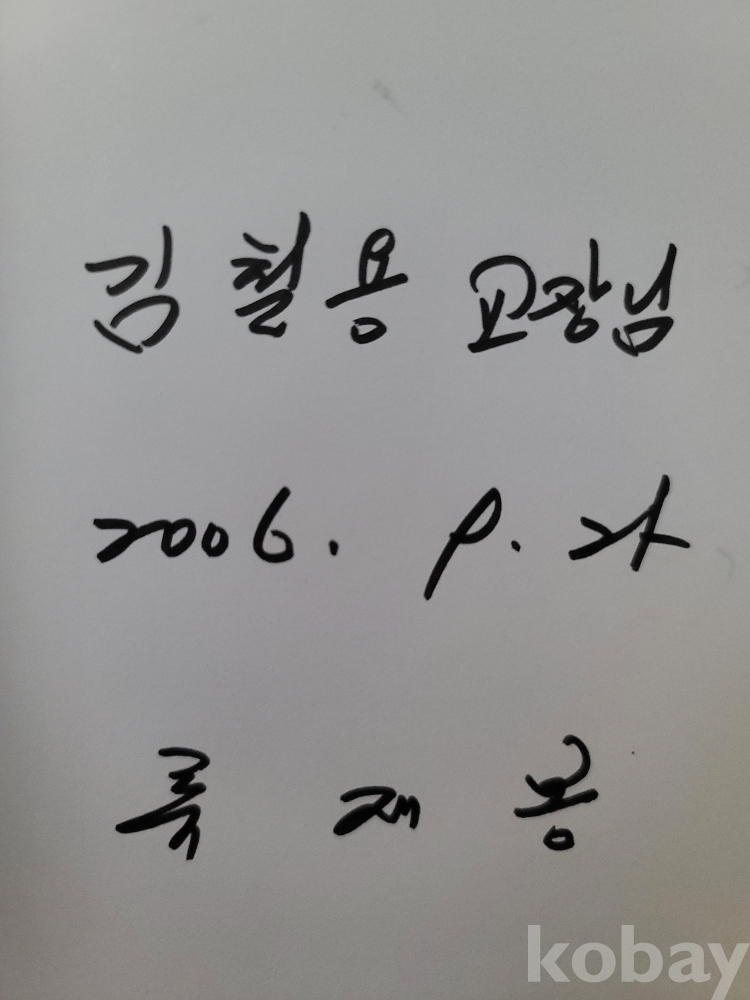 김철용 교장님
2006. 9. 24
륵재봉
kobay